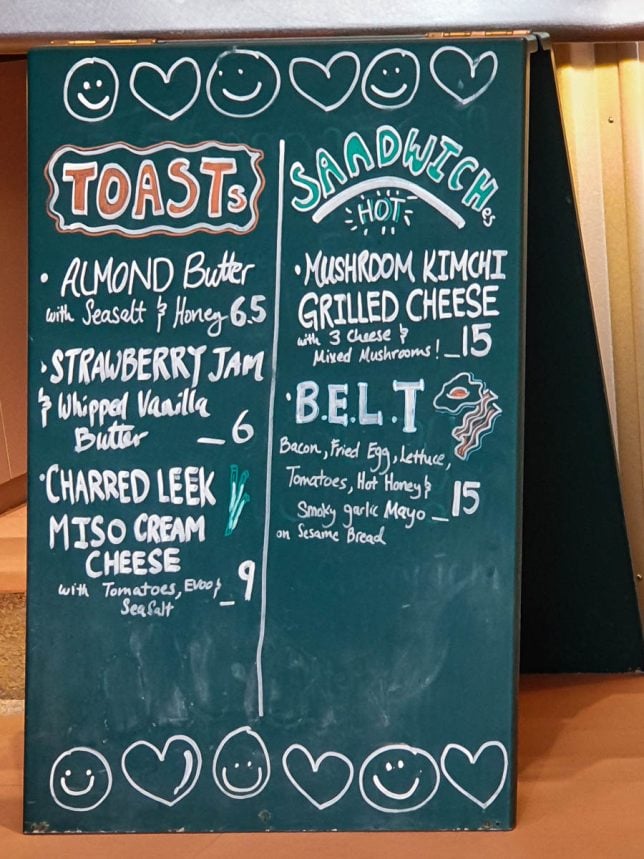 TOASTs
• ALMOND Butter
with Seasalt & Honey 6.5
• STRAWBERRY JAM
& Whipped Vanilla
Butter _ 6
• CHARRED LEEK
MISO CREAM
CHEESE
with Tomatoes, EVOO &
Sea Salt _ 9
SANDWICHes
HOT
• MUSHROOM KIMCHI
GRILLED CHEESE
with 3 Cheese &
Mixed Mushrooms! _ 15
• B.E.L.T
Bacon, Fried Egg, Lettuce,
Tomatoes, Hot Honey &
Smoky garlic Mayo _ 15
on Sesame Bread